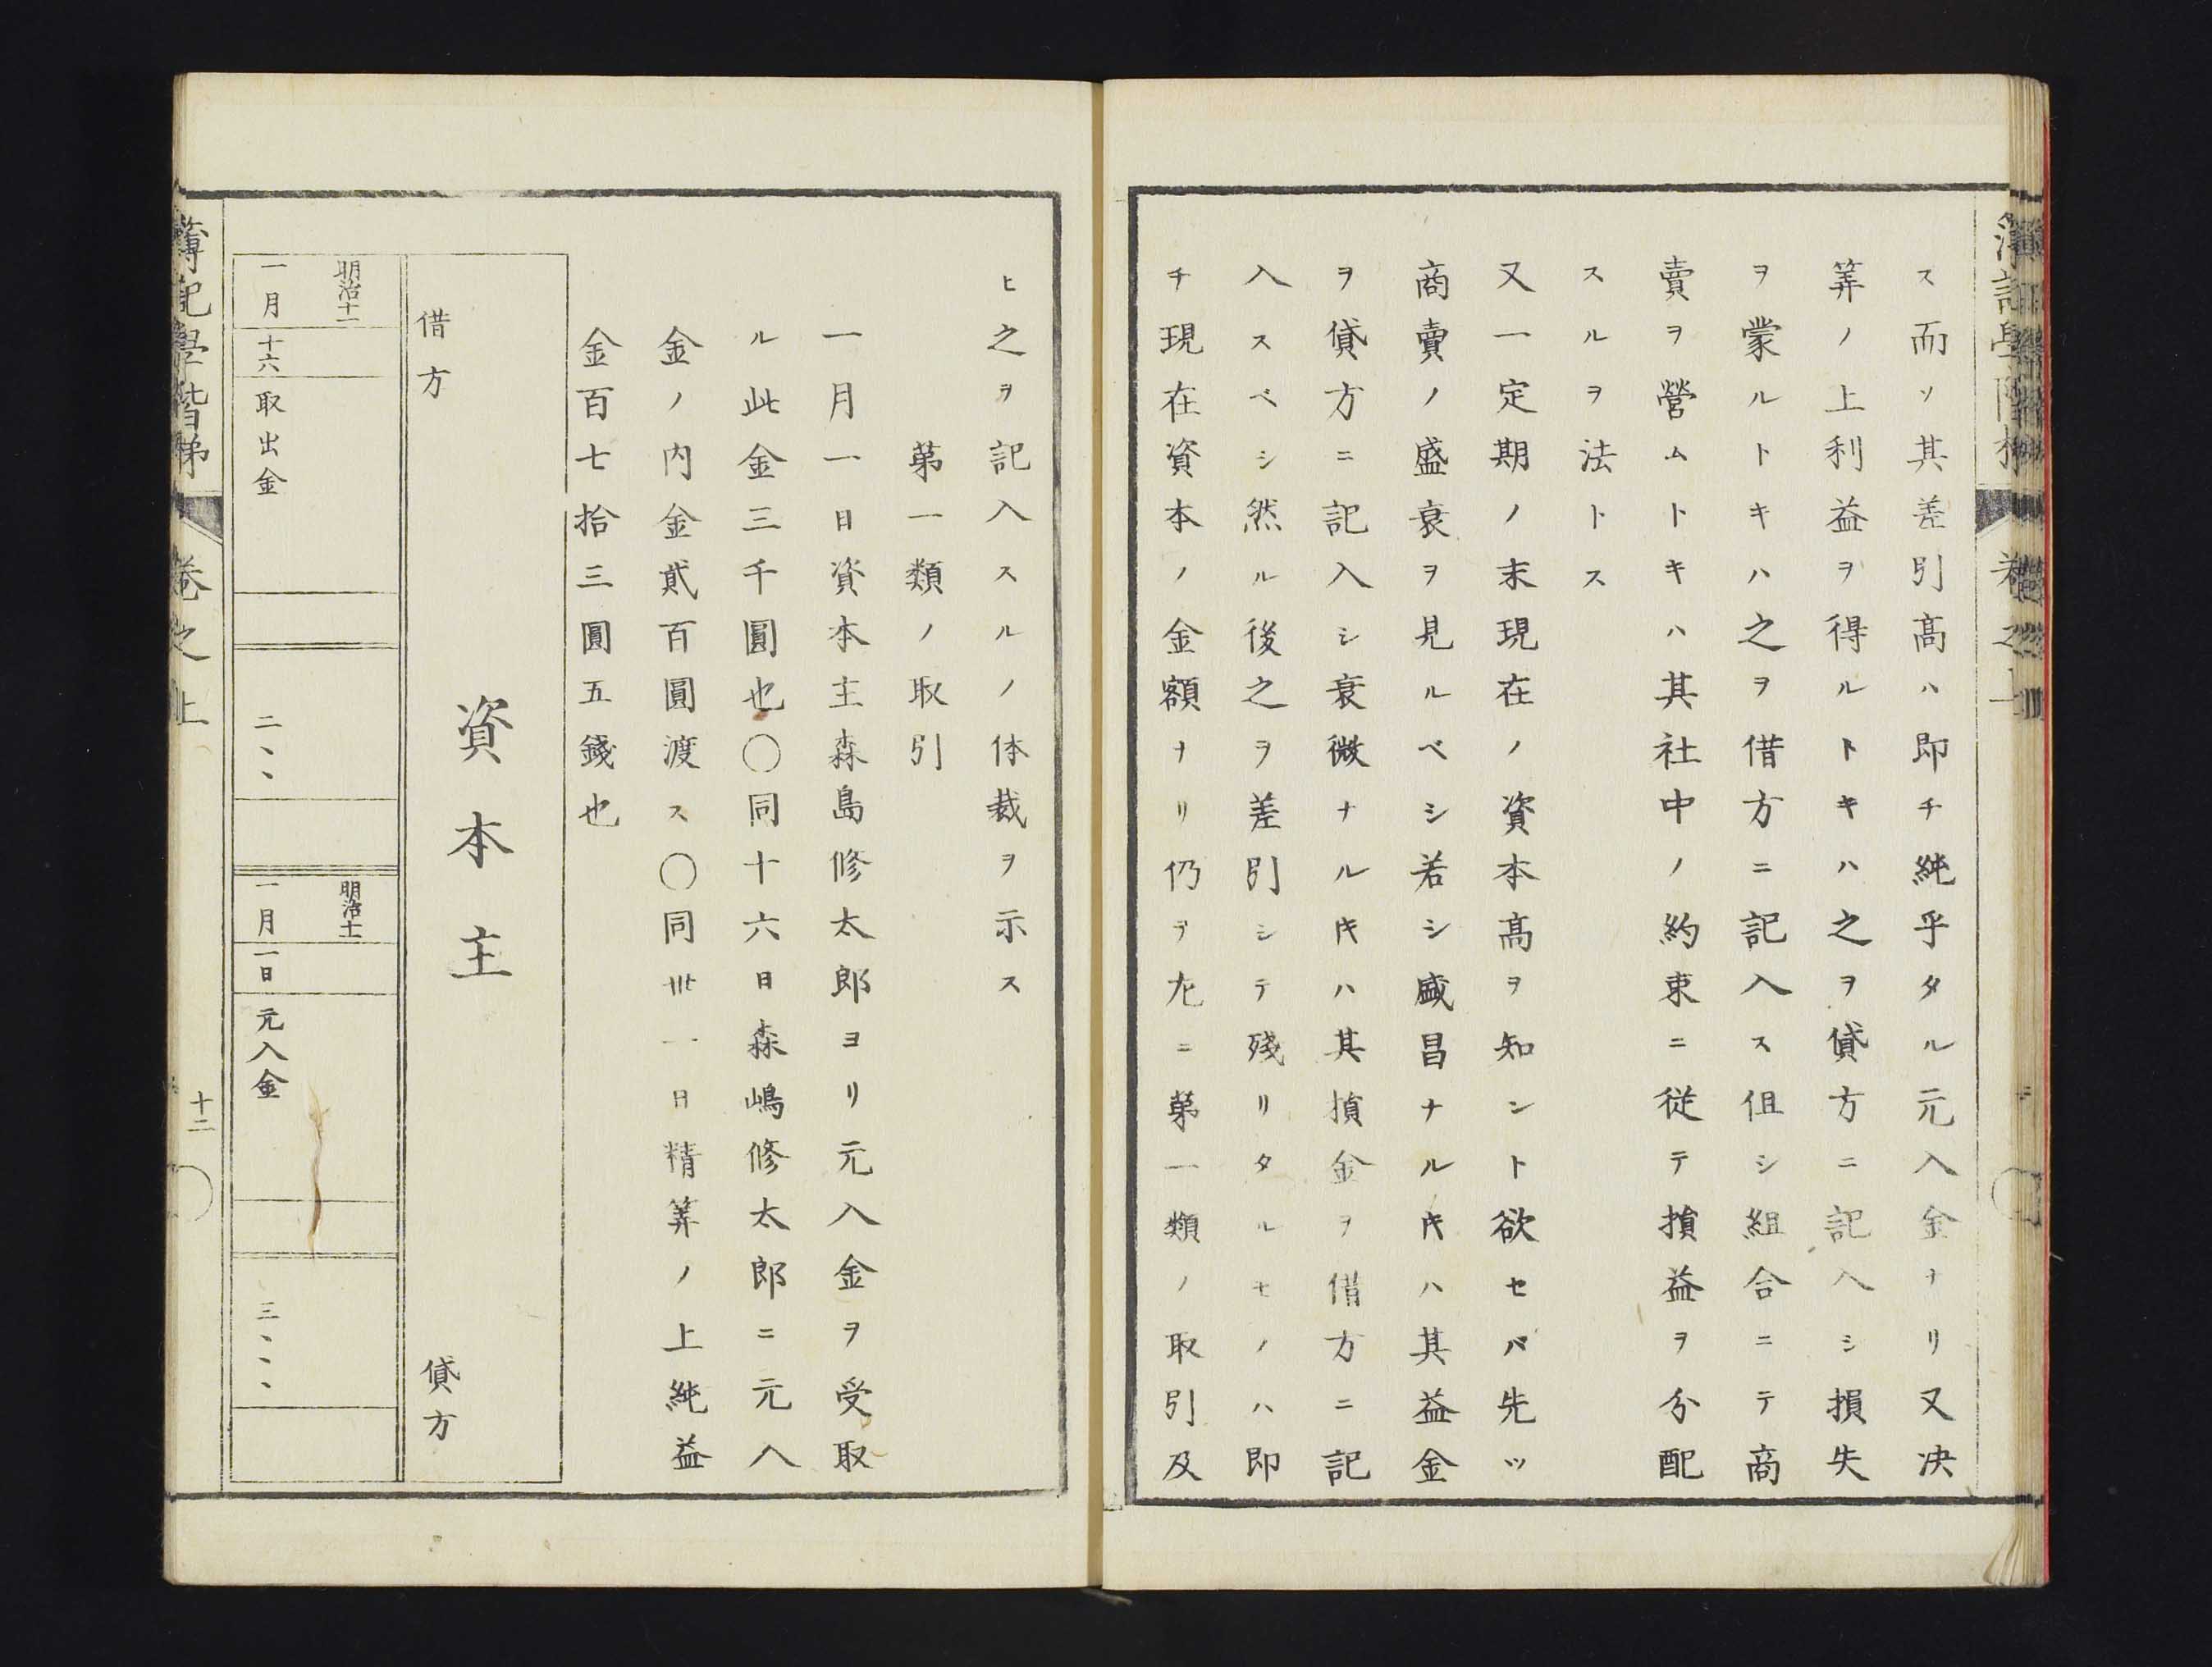 ス而ソ其差引髙ハ即チ純乎タル元入金ナリ又决
筭ノ上利益ヲ得ルトキハ之ヲ貸方ニ記入シ損失
ヲ蒙ルトキハ之ヲ借方ニ記入ス伹シ組合ニテ商
賣ヲ營ムトキハ其社中ノ約束ニ従テ損益ヲ分配
スルヲ法トス
又一定期ノ末現在ノ資本髙ヲ知ント欲セバ先ッ
商賣ノ盛衰ヲ見ルベシ若シ盛昌ナル𪜈ハ其益金
ヲ貸方ニ記入シ衰微ナル𪜈ハ其損金ヲ借方ニ記
入スベシ然ル後之ヲ差引シテ殘リタルモノハ即
チ現在資本ノ金額ナリ仍ヲ左ニ苐一類ノ取引及
ヒ之ヲ記入スルノ体裁ヲ示ス
苐一類ノ取引
一月一日資本主森島修太郎ヨリ元入金ヲ受取
ル此金三千圓也〇同十六日森嶋修太郎ニ元入
金ノ内金貳百圓渡ス〇同卅一日精筭ノ上純益
金百七拾三圓五錢也
資本主
借方
貸方
明治十一
一月
十六
取出金
二、、
明治十一
一月
一日
元入金
三、、、
簿記學階梯
卷之上
十二